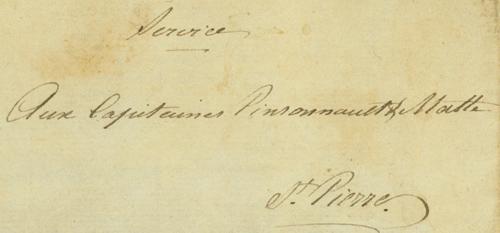 Service
Aux Capitaines Pinsonnault & Matte
St. Pierre.